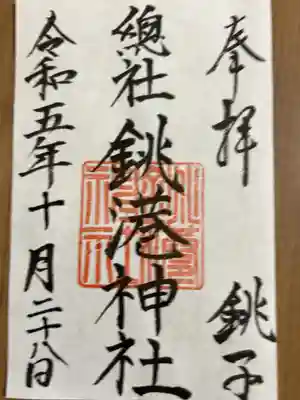 奉拝
銚子
總社 銚港神社
令和五年十月二十八日